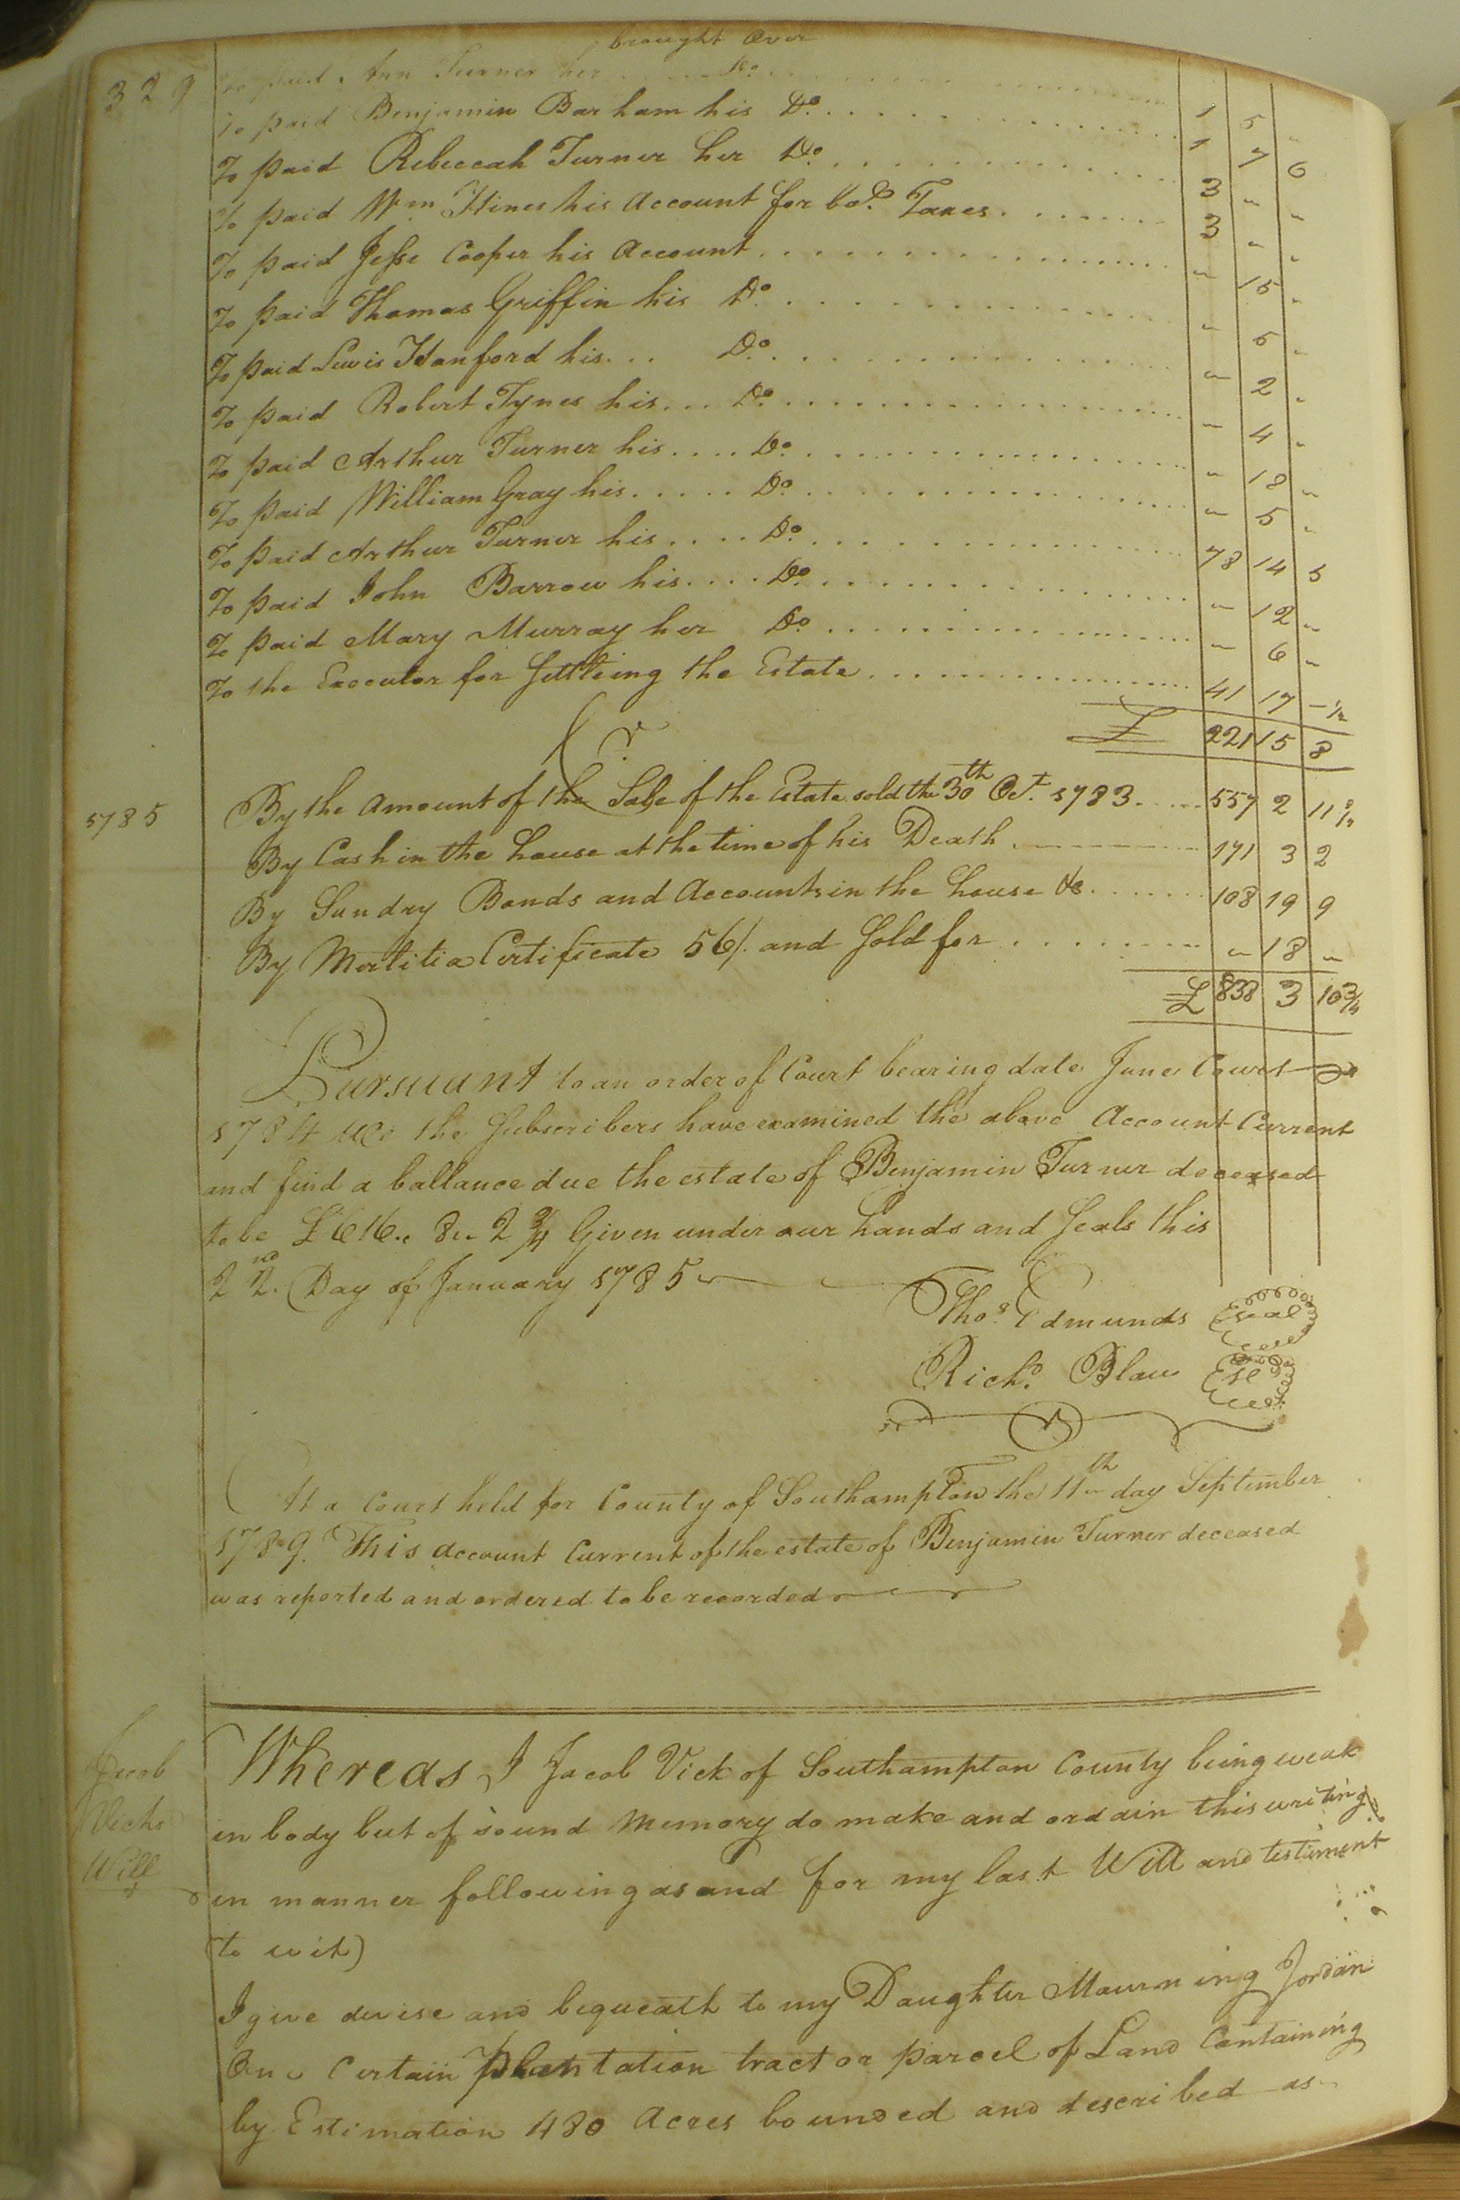 brought Over
329
To paid Ann Turner her Do
To paid Benjamin Barham his Do 1 5 "
To paid Rebeccah Turner her Do 1 7 6
To paid Wm Hines his Account for Co. Taxes 3 " "
To paid Jesse Cooper his Account 3 " "
To paid Thomas Griffin his Do " 15 "
To paid Lewis Hanford his Do " 5 "
To paid Robert Tynes his Do " 2 "
To paid Arthur Turner his Do " 4 "
To paid William Gray his Do " 18 "
To paid Arthur Turner his Do " 5 "
To paid John Barrow his Do 78 14 5
To paid Mary Murray her Do " 12 "
" 6 "
To the Executor for Settleing the Estate 41 17 – 1/2
£ 221 15 8
Cr
1785
By the amount of the Sale of the Estate sold the 30th Oct. 1783 557 2 11 3/4
By Cash in the house at the time of his Death 171 3 2
By Sundry Bonds and Accounts in the house &c 108 19 9
By Mertitia Certificate 56/. and Sold for " 18 "
£ 838 3 10 3/4
Pursuant to an order of Court bearing date June Court
1784 we the Subscribers have examined the above Account Current
and find a ballance due the estate of Benjamin Turner deceased
to be £616.. 8.. 2 3/4 Given under our hands and Seals this
22nd Day of January 1785
Thos. Edmunds Seal
Richd. Blow Sel
At a Court held for County of Southampton the 11th day September
1789. This account Current of the estate of Benjamin Turner deceased
was reported and ordered to be recorded
Jacob
Vicks
Will
Whereas I Jacob Vick of Southampton County being weak
in body but of sound Memory do make and ordain this writing
in manner following as and for my last Will and testiment
(to wit)
I give devise and bequeath to my Daughter Mourning Jordan
One Certain Plantation tract or parcel of Land Containing
by Estimation 480 Acres bounded and described as